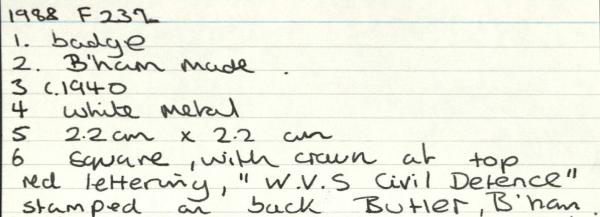 1988 F 232
1. badge
2. B'ham made.
3 c.1940
4 white metal
5 2.2cm x 2.2 cm
6 square, with crown at top
red lettering, "W.V.S Civil Defence"
stamped on back Butler, B'ham.